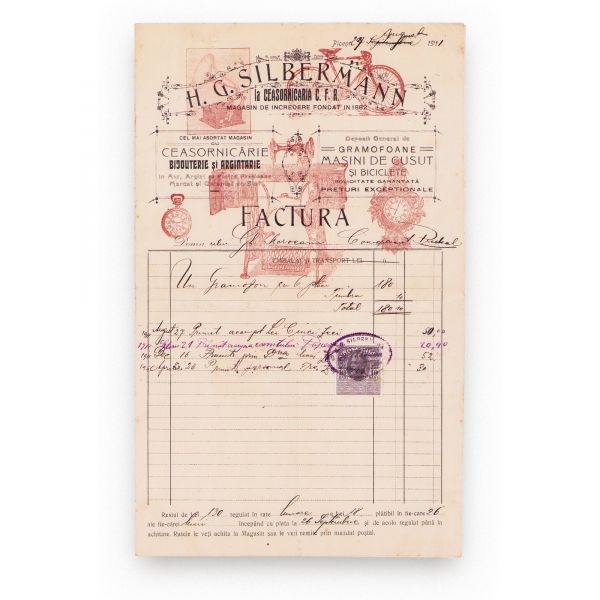 Picești, 27 August 1911
H. G. SILBERMANN
la CEASORNICARIA C. F. R.
MAGASIN DE INCREDERE FONDAT IN 1882
CEL MAI ASORTAT MAGASIN
CU
CEASORNICĂRIE
BIJOUTERIE și ARGINTARIE
in Aur, Argint și Pietre Prețioase
Depoul General de
GRAMOFOANE
MAȘINI DE CUSUT
ȘI BICICLETE
SOLIDITATE GARANTATĂ
PREȚURI EXCEPȚIONALE
FACTURA
AMBALAJ și TRANSPORT LEI
Un Gramofon cu 6 plăci 180
Timbru 10
Total 180 10
August 27 Primit acompt Lei 50.00
21 20,00
Dec 16 Primit prin 52
20 Primit 30
Restul de Lei 130 regulat în rate lunare 18 plătibil în fie-care 26
ale fie-cărei luni începând cu plata la 26 Septembrie și de acolo regulat până la
achitare. Ratele le veți achita la Magasin sau le veți remite prin mandat poștal.